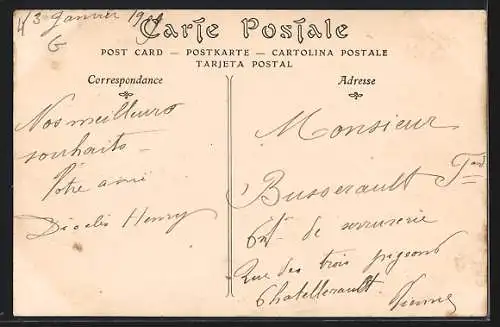 3 Janvier
Carte Postale
POST CARD — POSTKARTE — CARTOLINA POSTALE
TARJETA POSTAL
Correspondance
Nos meilleurs
souhaits
Votre ami
Henry
Adresse
Monsieur
Busserault
Ent de serrurerie
Rue des trois pigeons
Chatellerault
Vienne